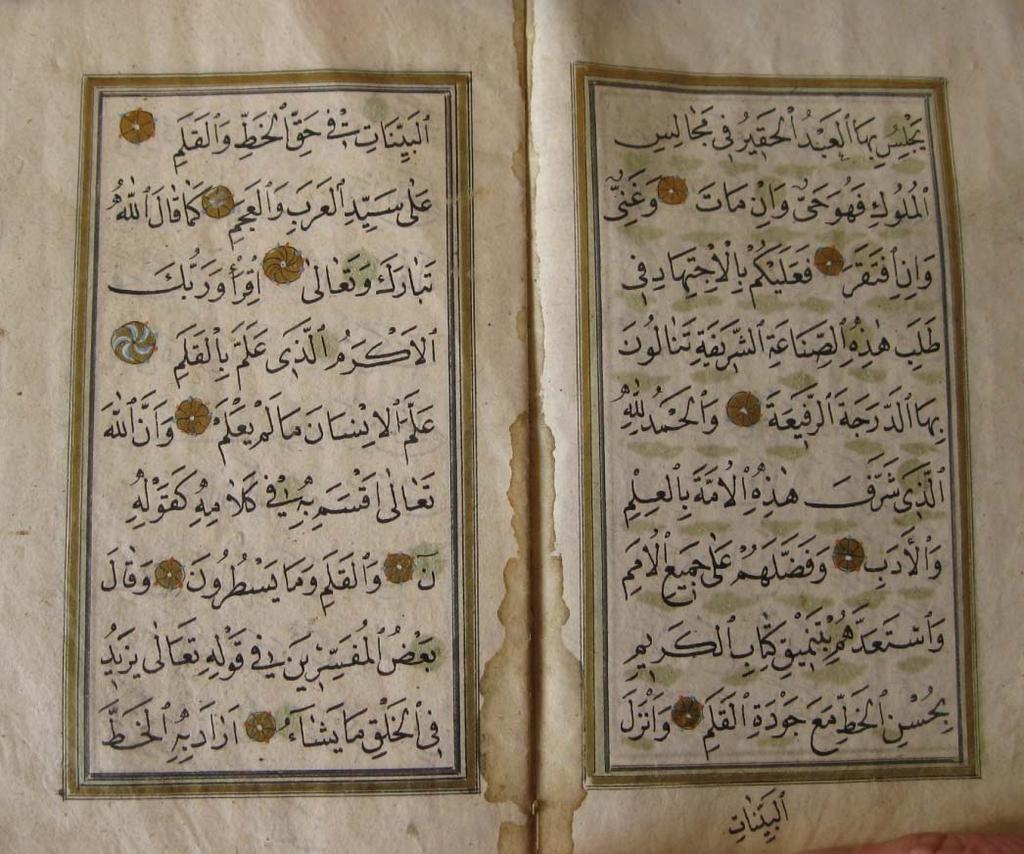 يَجْلِسُ بِهَا الْعَبْدُ الْحَقِيرُ فِي مَجَالِسِ
الْمُلُوكِ فَهُوَ حَيٌّ وَاِنْ مَاتَ وَغَنِيٌّ
وَاِنِ افْتَقَرَ فَعَلَيْكُمْ بِالْاِجْتِهَادِ فِي
طَلَبِ هٰذِهِ الصِّنَاعَةِ الشَّرِيفَةِ تَنَالُونَ
بِهَا الدَّرَجَةَ الرَّفِيعَةَ وَالْحَمْدُ لِلّٰهِ
الَّذِي شَرَّفَ هٰذِهِ الْاُمَّةَ بِالْعِلْمِ
وَالْأَدَبِ وَفَضَّلَهُمْ عَلٰى جَمِيعِ الْاُمَمِ
وَاسْتَعَدَّهُمْ بِتَنْمِيقِ كِتَابِ الْكَرِيمِ
بِحُسْنِ الْخَطِّ مَعَ جَوْدَةِ الْقَلَمِ وَاَنْزَلَ
الْبَيِّنَاتِ
الْبَيِّنَاتِ فِي حَقِّ الْخَطِّ وَالْقَلَمِ
عَلٰى سَيِّدِ الْعَرَبِ وَالْعَجَمِ كَمَا قَالَ اللّٰهُ
تَبَارَكَ وَتَعَالٰى اِقْرَأْ وَرَبُّكَ
الْاَكْرَمُ الَّذِي عَلَّمَ بِالْقَلَمِ
عَلَّمَ الْاِنْسَانَ مَا لَمْ يَعْلَمْ وَاَنَّ اللّٰهَ
تَعَالٰى اَقْسَمَ بِهِ فِي كَلَامِهِ كَقَوْلِهِ
نٓ وَالْقَلَمِ وَمَا يَسْطُرُونَ وَقَالَ
بَعْضُ الْمُفَسِّرِينَ فِي قَوْلِهِ تَعَالٰى يَزِيدُ
فِي الْخَلْقِ مَا يَشَاءُ اَرَادَ بِهِ الْخَطَّ